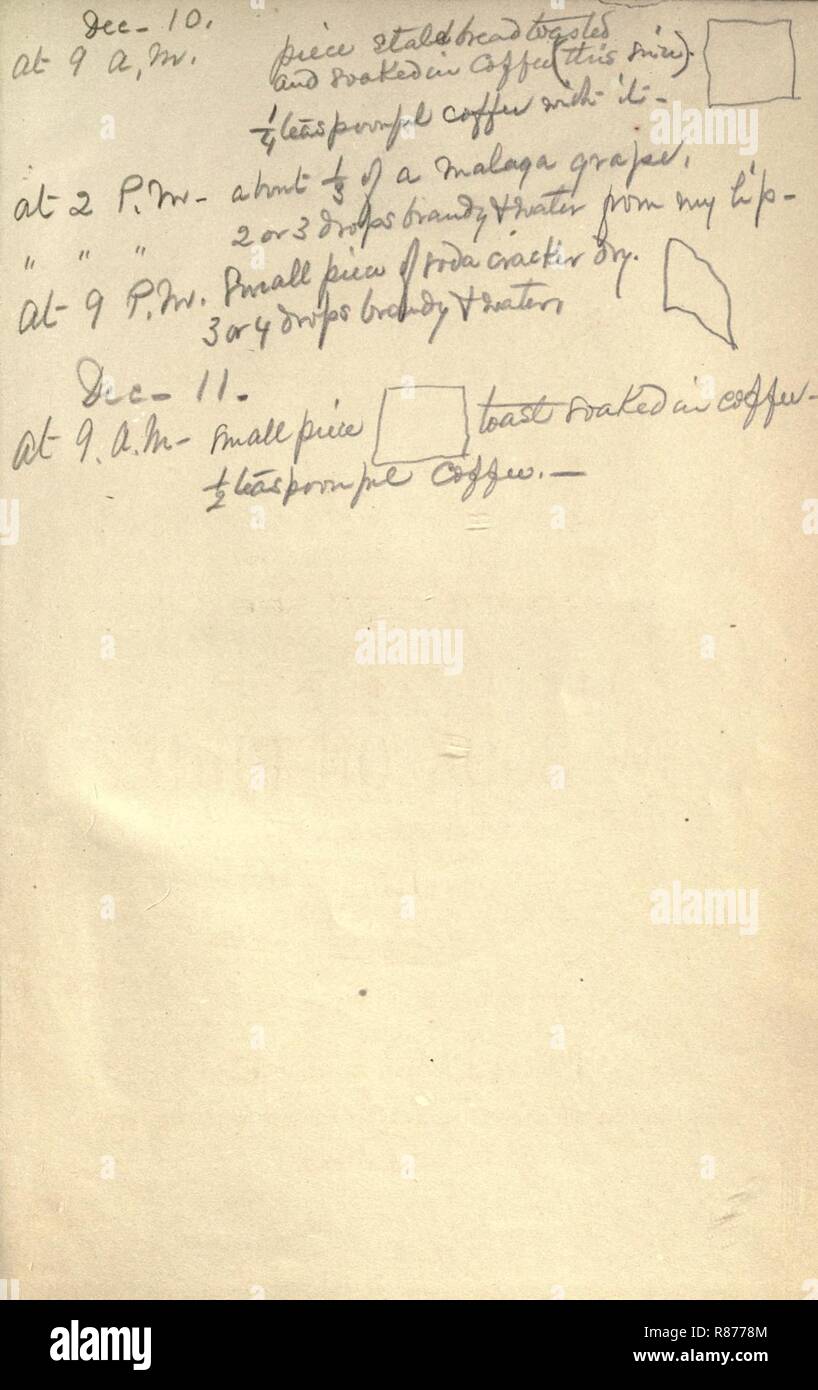 Dec- 10.
at 9 A.M. piece stale bread toasted
and soaked in coffee (this size).
1/4 teaspoonful coffee with it-
at 2 P.M- about 1/3 of a malaga grape,
" " " 2 or 3 drops brandy & water from my lip-
at 9 P.M. small piece of soda cracker dry.
3 or 4 drops brandy & water,
Dec- 11.
at 9. A.M- small piece toast soaked in coffee-
1/2 teaspoonful coffee.-
alamy
Image ID: R8778M
www.alamy.com